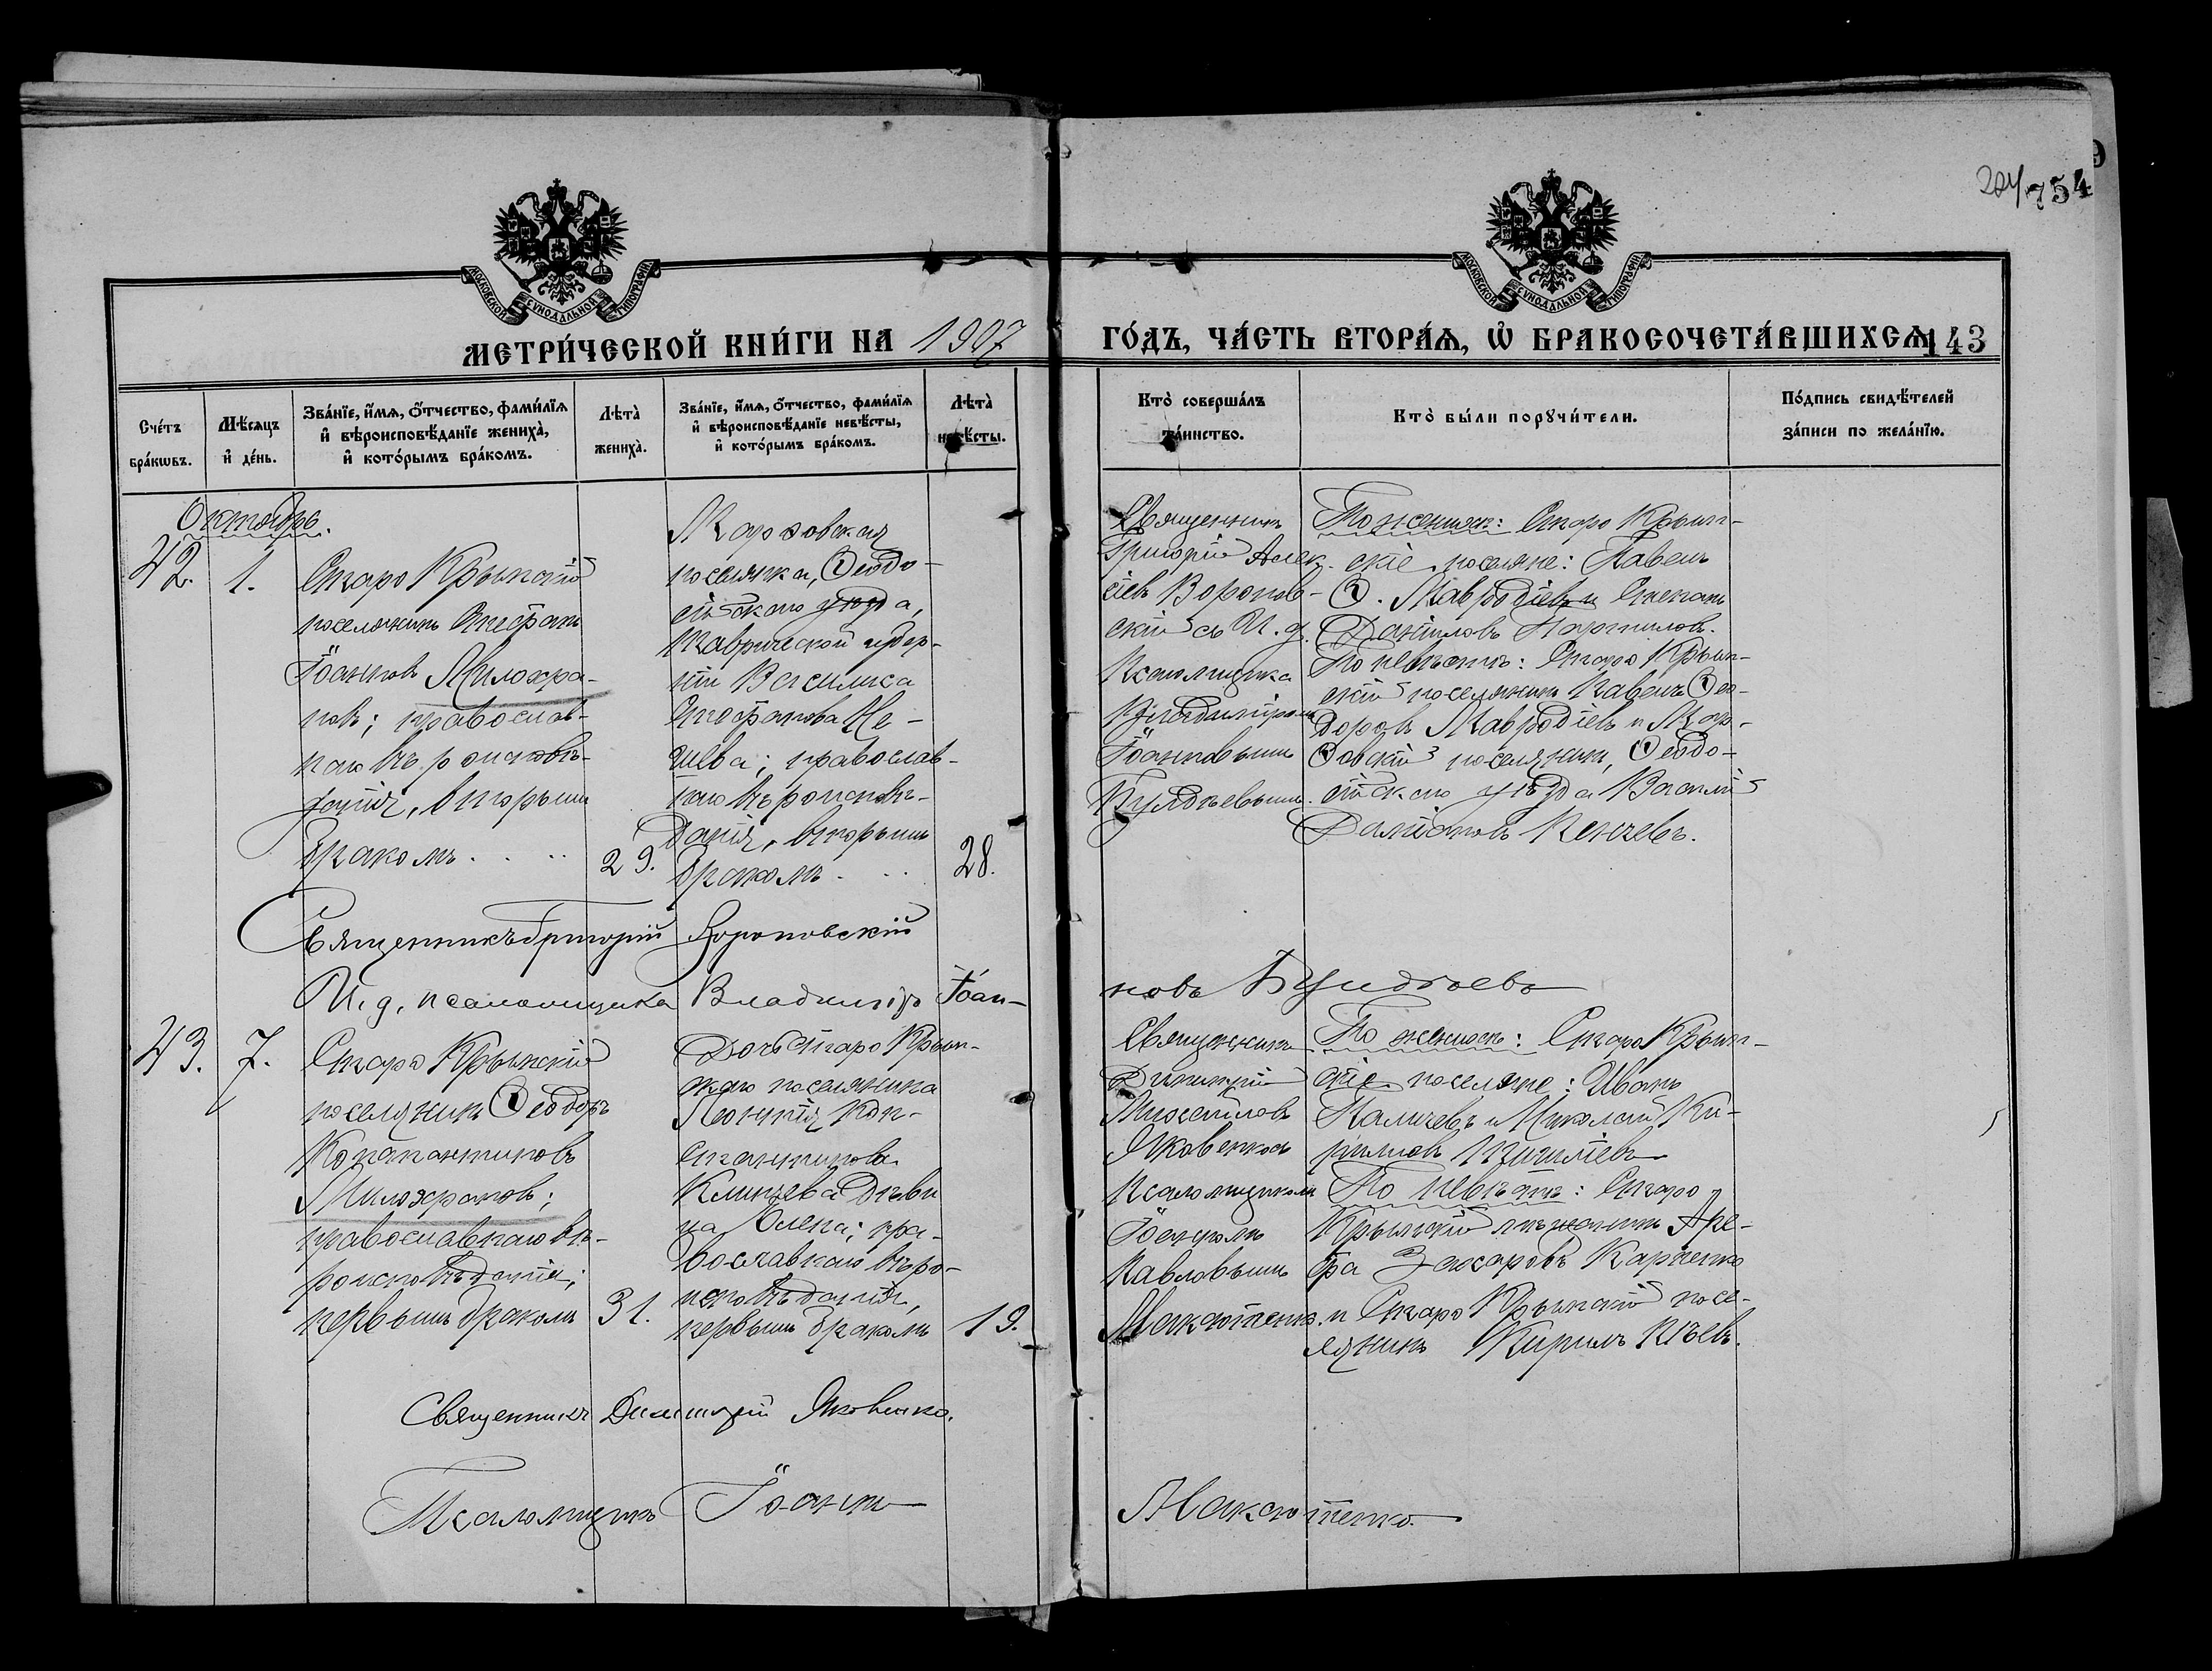 204/754
9
МОСКОВСКОЙ СУНОДАЛЬНОЙ ТИПОГРАФІИ
МОСКОВСКОЙ СУНОДАЛЬНОЙ ТИПОГРАФІИ
МЕТРИ́ЧЕСКОЙ КНИ́ГИ НА 1907
ГО́ДЪ, ЧА́СТЬ ВТОРА́Ѧ, Ѿ БРАКОСОЧЕТА́ВШИХСѦ
143
Сче́тъ бра́кѡвъ.
Мѣ́сяцъ и де́нь.
Зва́нїе, и́мѧ, о́тчество, фами́лїѧ
и вѣроисповѣ́данїе жениха̀,
и кото́рымъ бра́комъ.
Лѣта̀ жениха̀.
Зва́нїе, и́мѧ, о́тчество, фами́лїѧ
и вѣроисповѣ́данїе невѣ́сты,
и кото́рымъ бра́комъ.
Лѣта̀ невѣ́сты.
Кто̀ соверша́лъ та́инство.
Кто̀ бы́ли порꙋчи́тели.
По́дпись свидѣ́телей
за́писи по жела́нїю.
Октябрь.
42.
1.
Старо Крымскій
поселянинъ Стефанъ
Іоанновъ Милохра-
новъ; православ-
наго вѣроисповѣ-
данія, вторымъ
бракомъ
29.
поселянка, Ѳеодо-
сійскаго уѣзда,
Таврической губер-
ніи Василиса
Стефанова Не-
шева; православ-
наго вѣроисповѣ-
данія, вторымъ
бракомъ
28.
Священникъ
Григорій Алек-
сіевъ Воронов-
скій съ И. д.
Псаломщика
Владиміромъ
Іоанновымъ
По женихѣ: Старо Крым-
скіе поселяне: Павелъ
Ѳ. Мавродіевъ и Стефанъ
Даниловъ
По невѣстѣ: Старо Крым-
скій поселянинъ Павелъ Ѳео-
доровъ Мавродіевъ и
поселянинъ, Ѳеодо-
сійскаго уѣзда Василій
Даміановъ Кенчевъ.
Священникъ Григорій Вороновскій
И. д. псаломщика Владиміръ Іоан-
новъ
43.
7.
Старо Крымскій
поселянинъ Ѳеодоръ
Константиновъ
Милохрановъ;
православнаго вѣ-
роисповѣданія;
первымъ бракомъ
31.
Дочь Старо Крым-
скаго поселянина
Леонтія Кон-
стантинова
Клинчева дѣви
ца Елена; пра-
вославнаго вѣро-
исповѣданія,
первымъ бракомъ
19.
Священникъ
Димитрій
Михайловъ
Яковенко съ
Псаломщикомъ
Іоанномъ
Павловымъ
Максютенко.
По женихѣ: Старо Крым-
скіе поселяне: Иванъ
Каличевъ и Николай Ки-
рилловъ
По невѣстѣ: Старо
Крымскій мѣщанинъ Аре-
фа Захаровъ Карпенко
и Старо Крымскій посе-
лянинъ Кирилъ
Священникъ Димитрій Яковенко.
Псаломщикъ Іоаннъ Максютенко.